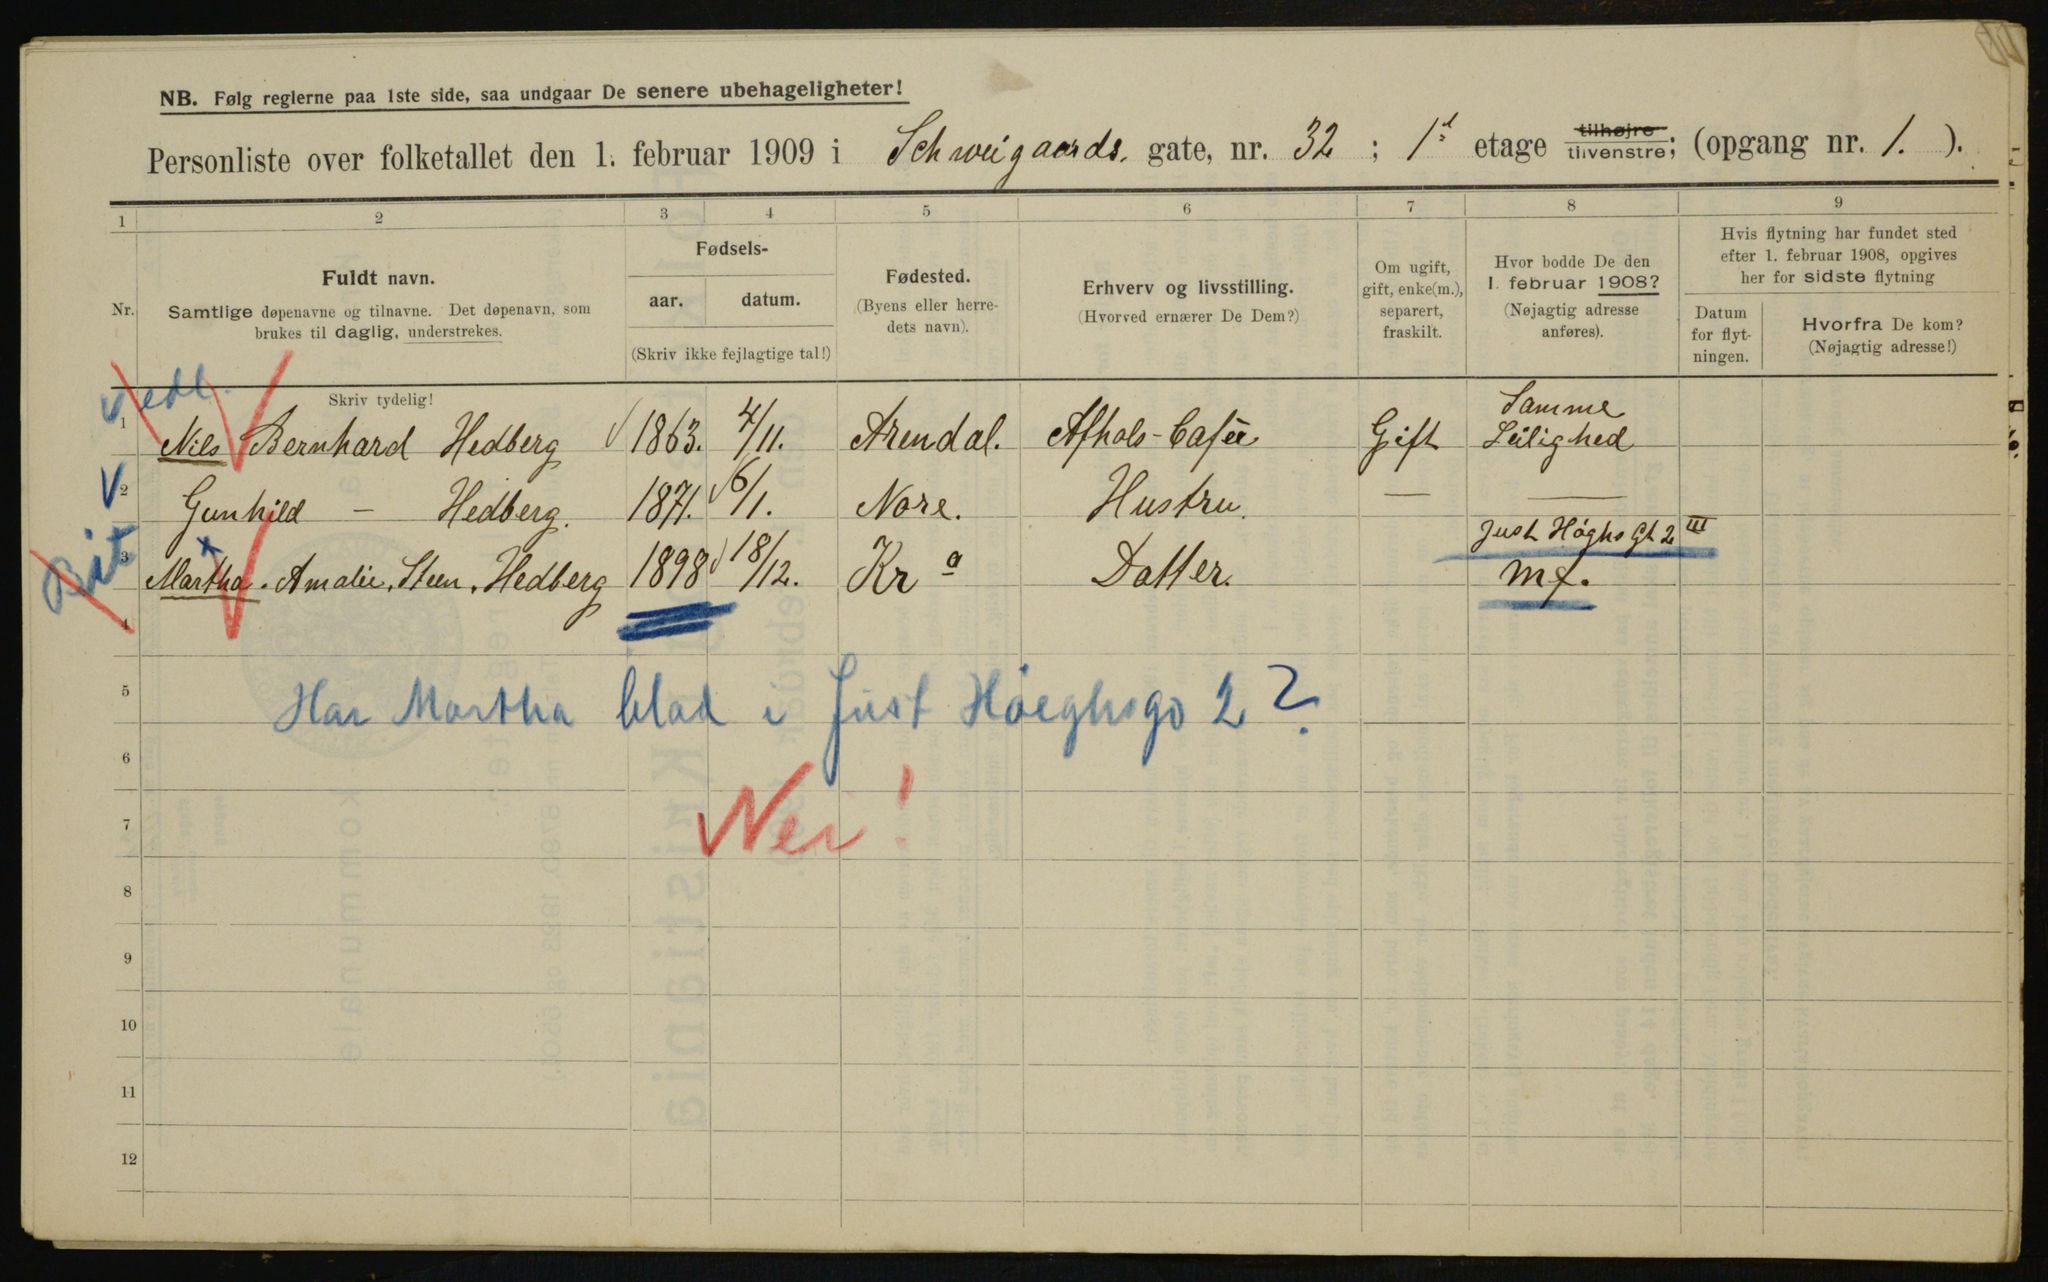 NB. Følg reglerne paa 1ste side, saa undgaar De senere ubehageligheter!
Personliste over folketallet den 1. februar 1909 i Schweigaards. gate, nr. 32 ; 1ᵗ etage tilhøjre tilvenstre; (opgang nr. 1. ).
1 2 3 4 5 6 7 8 9
Nr.
Fuldt navn.
Samtlige døpenavne og tilnavne. Det døpenavn, som
brukes til daglig, understrekes.
Fødsels-
aar. datum.
(Skriv ikke fejlagtige tal!)
Fødested.
(Byens eller herre-
dets navn).
Erhverv og livsstilling.
(Hvorved ernærer De Dem?)
Om ugift,
gift, enke(m.),
separert,
fraskilt.
Hvor bodde De den
1. februar 1908?
(Nøjagtig adresse
anføres).
Hvis flytning har fundet sted
efter 1. februar 1908, opgives
her for sidste flytning
Datum
for flyt-
ningen.
Hvorfra De kom?
(Nøjagtig adresse!)
Skriv tydelig!
1 Nils Bernhard Hedberg 1863. 4/11. Arendal. Afhols-Cafèe Gift Samme Leilighed
2 Gunhild – Hedberg. 1871. 6/1. Nore. Hustru. — —
3 Martha. Amalie. Steen. Hedberg 1898 18/12. Kr a Datter. Just Høghs Gt 2 III
mf.
4
5 Har Martha blad i Just Høeghsgd 2?
6
7 Nei!
8
9
10
11
12